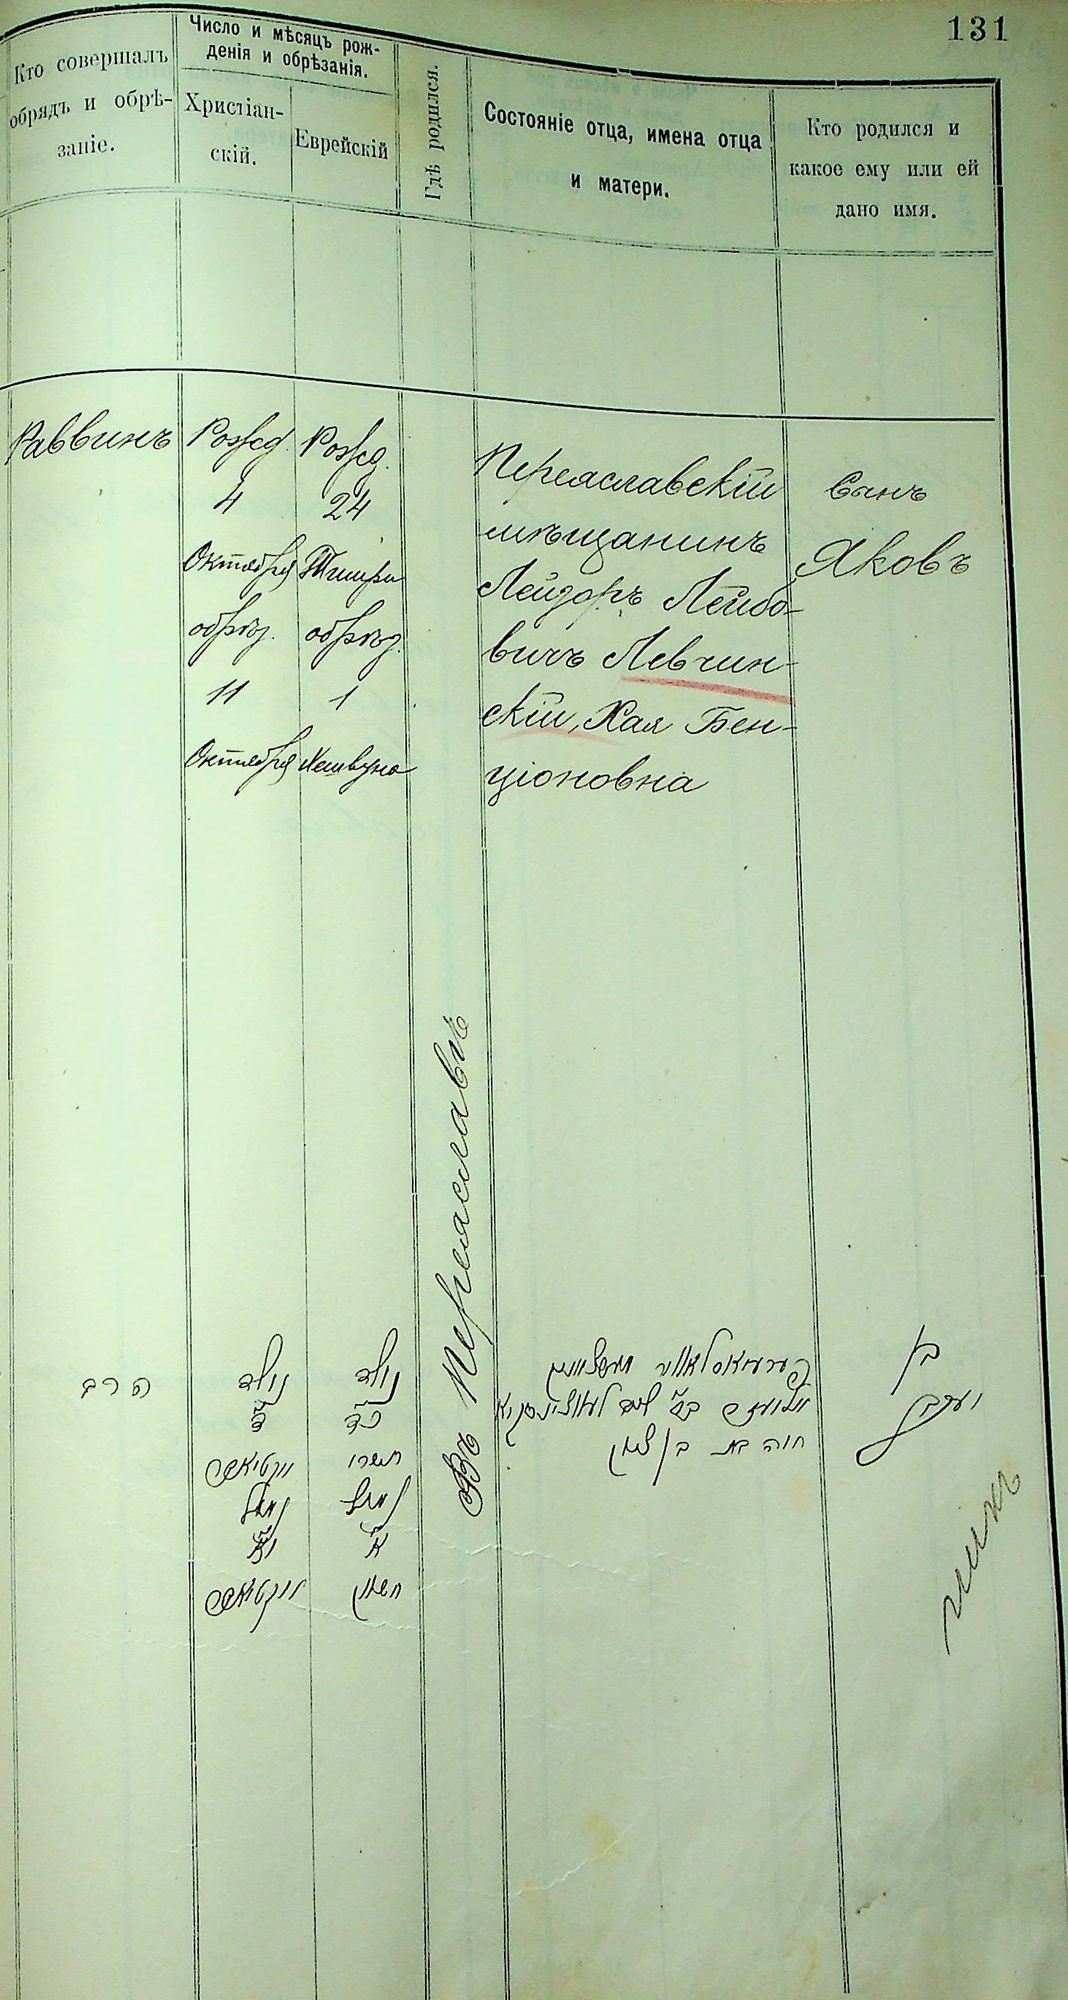 131
Кто совершалъ
обрядъ и обрѣ-
заніе.
Число и мѣсяцъ рож-
денія и обрѣзанія.
Христіан-
скій.
Еврейскій
Гдѣ родился.
Состояніе отца, имена отца
и матери.
Кто родился и
какое ему или ей
дано имя.
Раввинъ
Рожд.
4
Октября
обрѣз.
11
Октября
Рожд.
24
Тишри
обрѣз.
1
Хешвуна
Въ Переяславлѣ
Переяславскій
мѣщанинъ
Лейзоръ Лейбо-
вичъ Левчин-
скій, Хая Бен-
ціоновна
Сынъ
Яковъ
הרב
נולד
ד
אקטיאבר
נמול
יא
אקטיאבר
נולד
כד
תשרי
נמול
א
חשון
חיה בת בן ציון
בן
יעקב